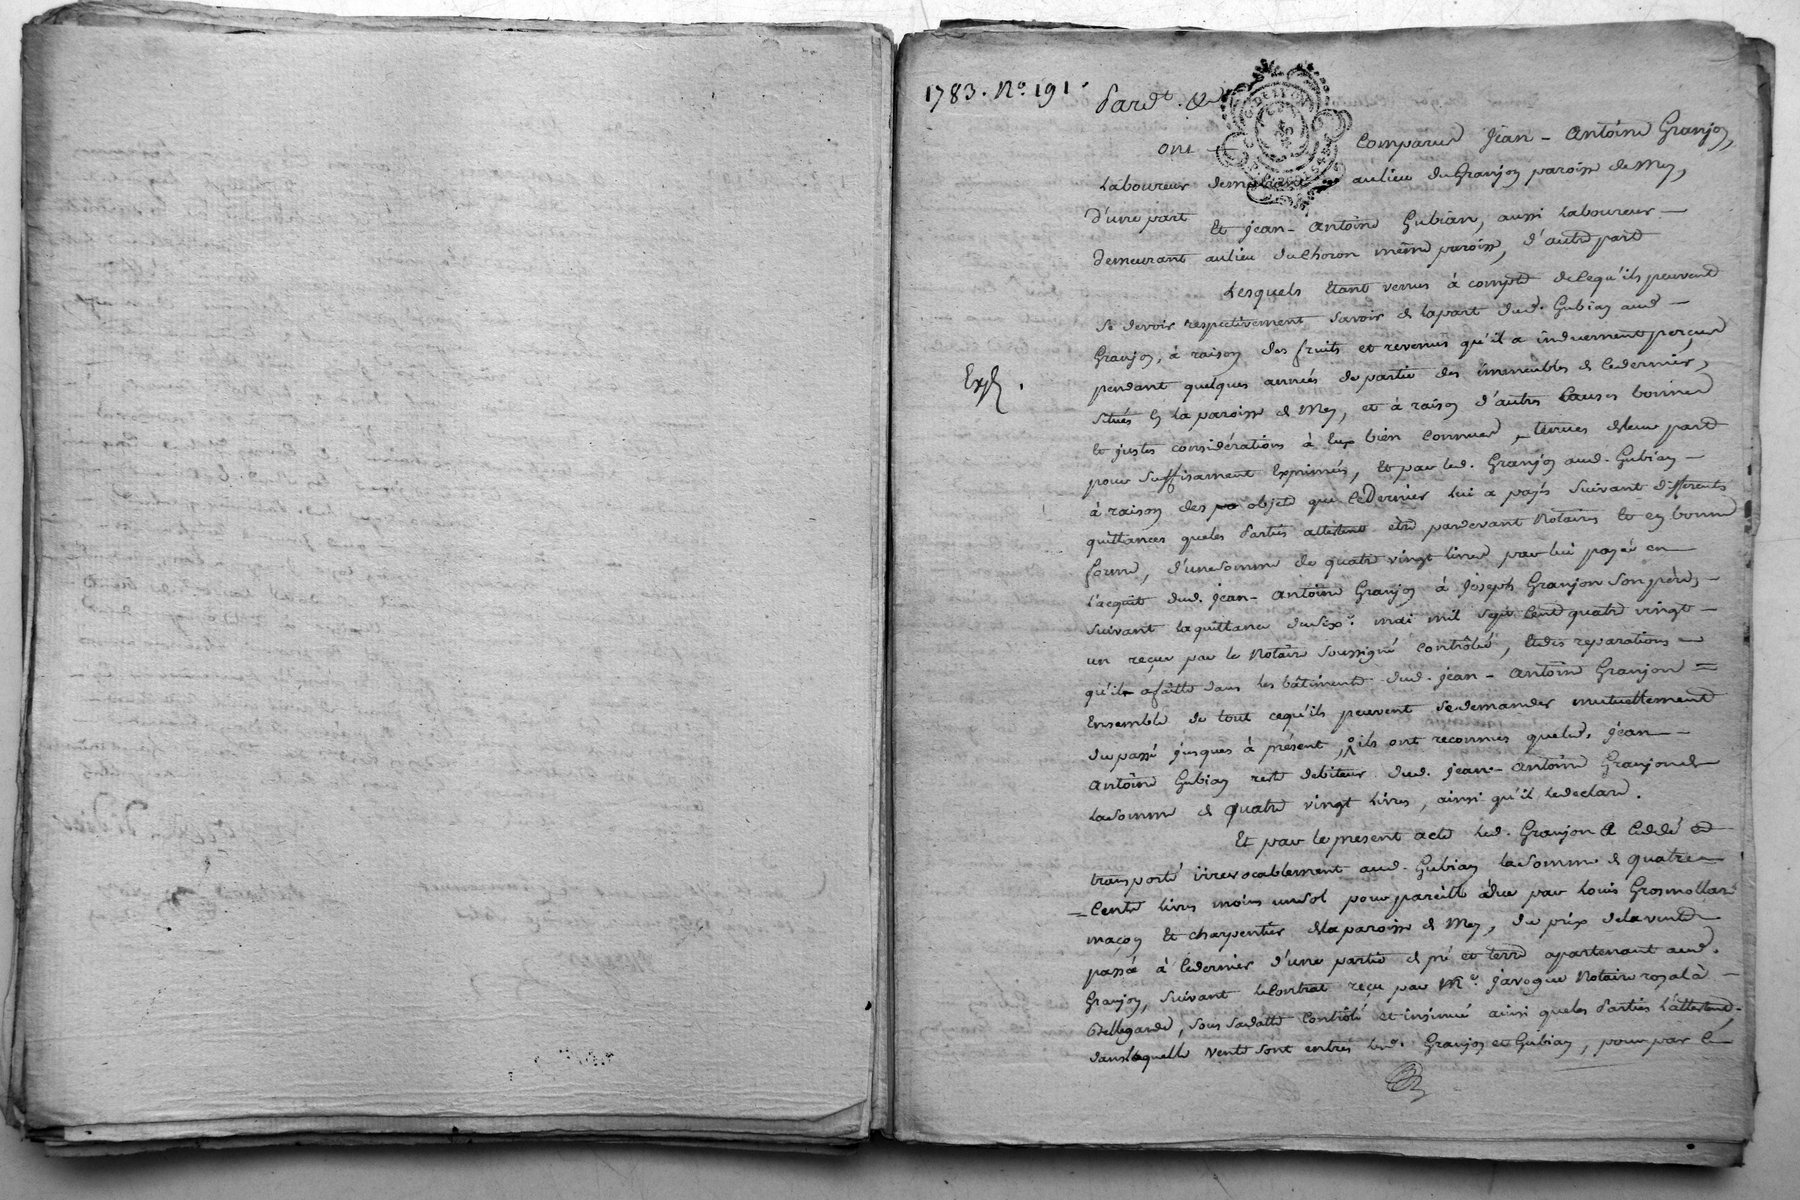 1783. No. 191.
Pardt. &a
ont comparus Jean-Antoine Granjon,
Laboureur demeurant au lieu du Granjon paroisse de Mey,
d'une part
Et Jean-Antoine Gubian, aussi Laboureur
demeurant au lieu du Choron même paroisse, d'autre part
Lesquels Etant venus à compte de ce qu'ils peuvent
se devoir respectivement savoir de la part dud. Gubian aud.
Granjon, à raison des fruits et revenus qu'il a induement perçus
Exp.
pendant quelques années de partie des immeubles de ce dernier,
situés en la paroisse de Mey, et à raison d'autres causes bonnes
et justes considérations à Eux bien connues, tenues de leur part
pour suffisament Exprimées, Et par led. Granjon aud. Gubian
à raison des objets que ce Dernier lui a payés suivant differents
quittances que les Parties attestent etre pardevant Notaires et en bonne
forme, d'une somme de quatre vingt livres par lui payée en
l'acquit dud. Jean-Antoine Granjon à Joseph Granjon son père,
suivant la quittance du Six mai mil sept cent quatre vingt
un reçue par le Notaire soussigné contrôlée, Et des reparations
qu'il a faitte dans les bâtiments dud. Jean-Antoine Granjon
Ensemble de tout ce qu'ils peuvent se demander mutuellement
du passé jusques à présent, ils ont reconnus que led. Jean
Antoine Gubian reste debiteur dud. Jean-Antoine Granjon de
la somme de quatre vingt Livres, ainsi qu'il le declare.
Et par le present acte led. Granjon A Cedé et
transporté irrevocablement aud. Gubian la somme de quatre
Cents livres moins un sol pour pareille düe par Louis Grosmollard
maçon Et charpentier de la paroisse de Mey, du prix de la vente
passée à ce dernier d'une partie de pré et terre apartenant aud.
Granjon, suivant le Contrat reçu par Me. Javogue Notaire royal à
Bellegarde, sous sa datte Contrôlé et insinué ainsi que les Parties l'attestent,
dans laquelle vente sont entrés les. Granjon et Gubian, pour par le